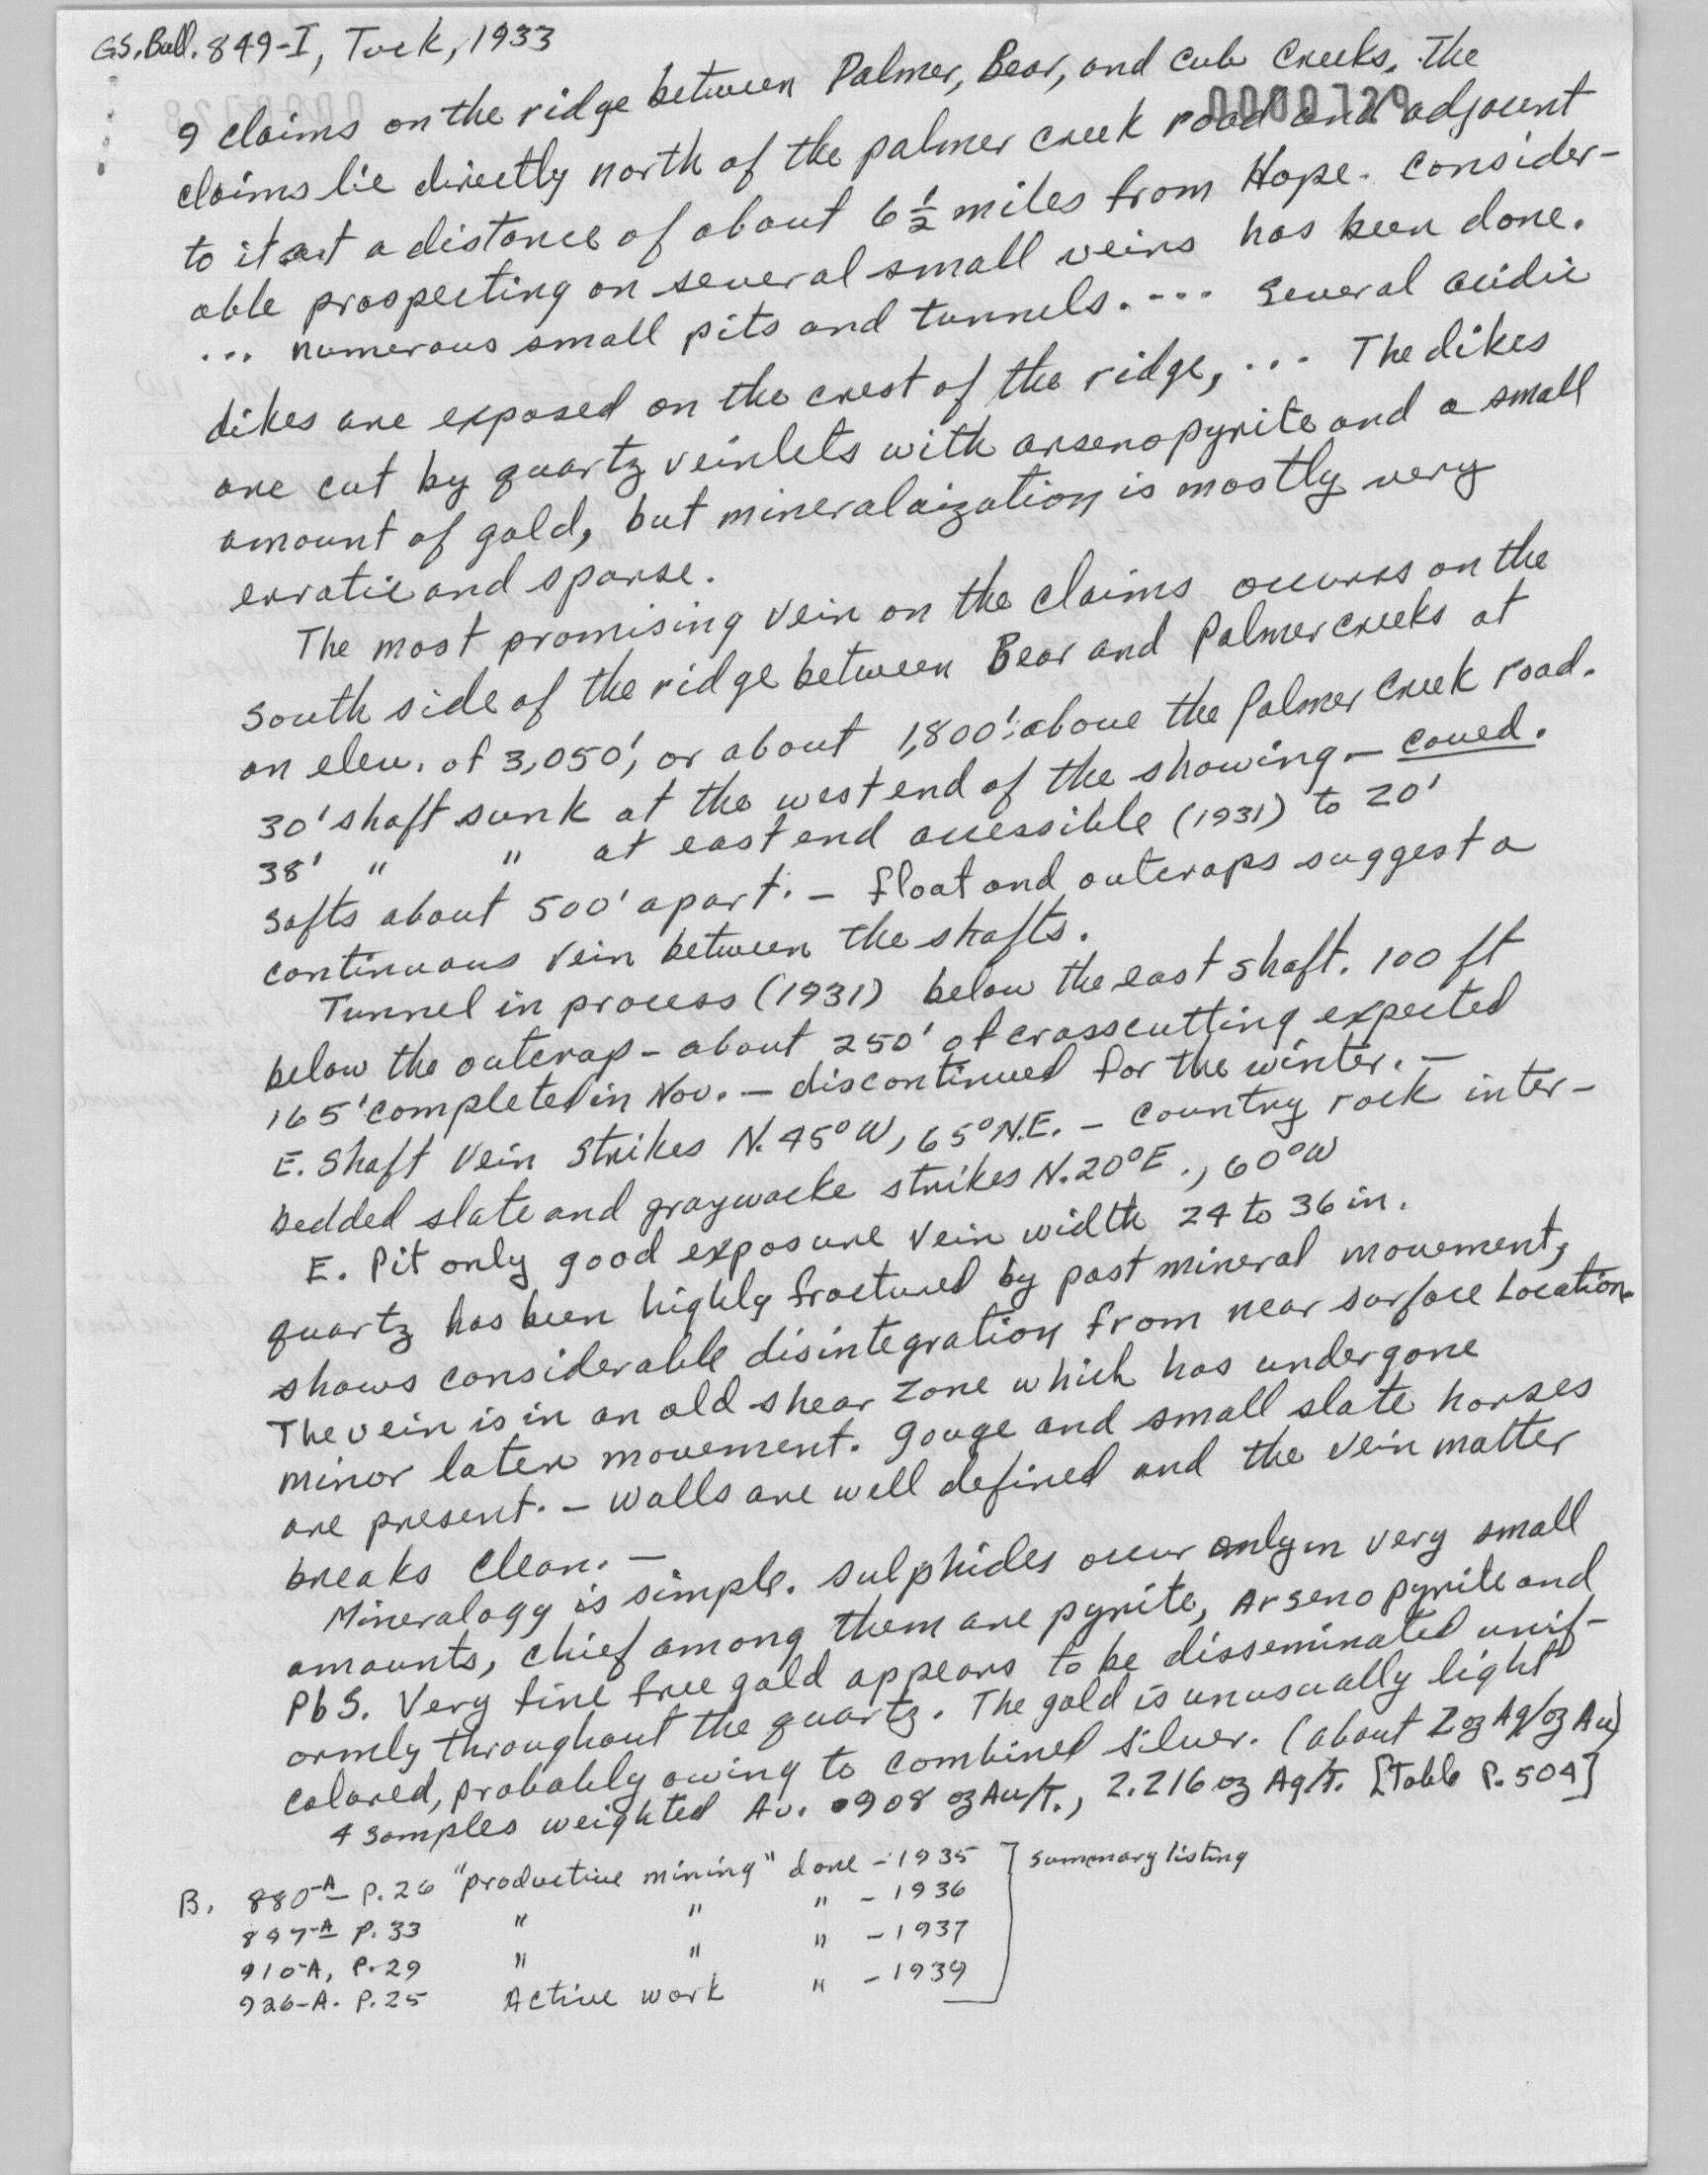 GS. Bull. 849-I, Tuck, 1933
0000729
9 claims on the ridge between Palmer, Bear, and Cub Creeks. The
claims lie directly north of the palmer creek road and adjacent
to it at a distance of about 6 1/2 miles from Hope. Consider-
able prospecting on several small veins has been done.
... numerous small pits and tunnels. --- Several acidic
dikes are exposed on the crest of the ridge, ... The dikes
are cut by quartz veinlets with arsenopyrite and a small
amount of gold, but mineralaization is mostly very
erratic and sparse.
The most promising vein on the claims occurrs on the
south side of the ridge between Bear and Palmer creeks at
an elev. of 3,050', or about 1,800' above the Palmer Creek road.
30' shaft sunk at the west end of the showing - caved.
38' " " at east end accessible (1931) to 20'
Safts about 500' apart. - float and outcrops suggest a
continuous vein between the shafts.
Tunnel in process (1931) below the east shaft. 100 ft
below the outcrop - about 250' of crosscutting expected
165' completed in Nov. - discontinued for the winter. -
E. Shaft Vein Strikes N. 45° W, 65° N.E. - Country rock inter-
bedded slate and graywacke strikes N. 20° E., 60° W
E. Pit only good exposure vein width 24 to 36 in.
quartz has been highly fractured by post mineral movement,
shows considerable disintegration from near surface location.
The vein is in an old shear zone which has undergone
minor later movement. gouge and small slate horses
are present. - walls are well defined and the vein matter
breaks clean. -
Mineralogy is simple. sulphides occur only in very small
amounts, chief among them are pyrite, Arsenopyrite and
PbS. Very fine free gold appears to be disseminated unif-
ormly throughout the quartz. The gold is unusually light
colored, probably owing to combined silver. (about 2 oz Ag/oz Au)
4 samples weighted Av. .908 oz Au/T., 2.216 oz Ag/T. [Table P. 504]
B. 880-A P. 26 "productive mining" done - 1935 ] summary listing
897-A P. 33 " " " - 1936
910-A, P. 29 " " " - 1937
926-A. P. 25 Active work " - 1939